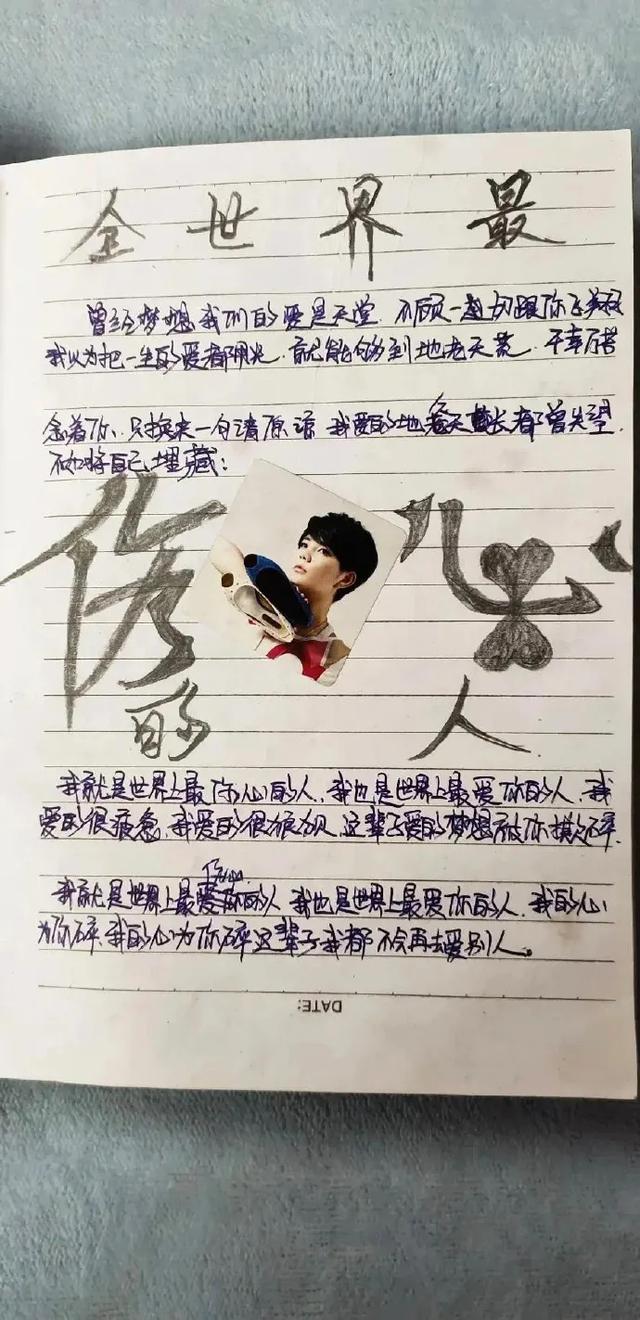 全世界最
曾经梦想我们的爱是天堂.不顾一切跟你飞翔
我以为把一生的爱都用光.就能够到地老天荒.千辛万苦
念着你.只换来一句请原谅 我爱的地老天长都曾失望.
不如将自己埋藏:
伤 心
的 人
我就是世界上最伤心的人.我也是世界上最爱你的人.我
爱的很疲惫.我爱的很狼狈.这辈子爱的梦想被你摧碎.
伤心
我就是世界上最的人 我也是世界上最爱你的人.我的心
为你碎.我的心为你碎这辈子我都不会再去爱别人。
DATE: